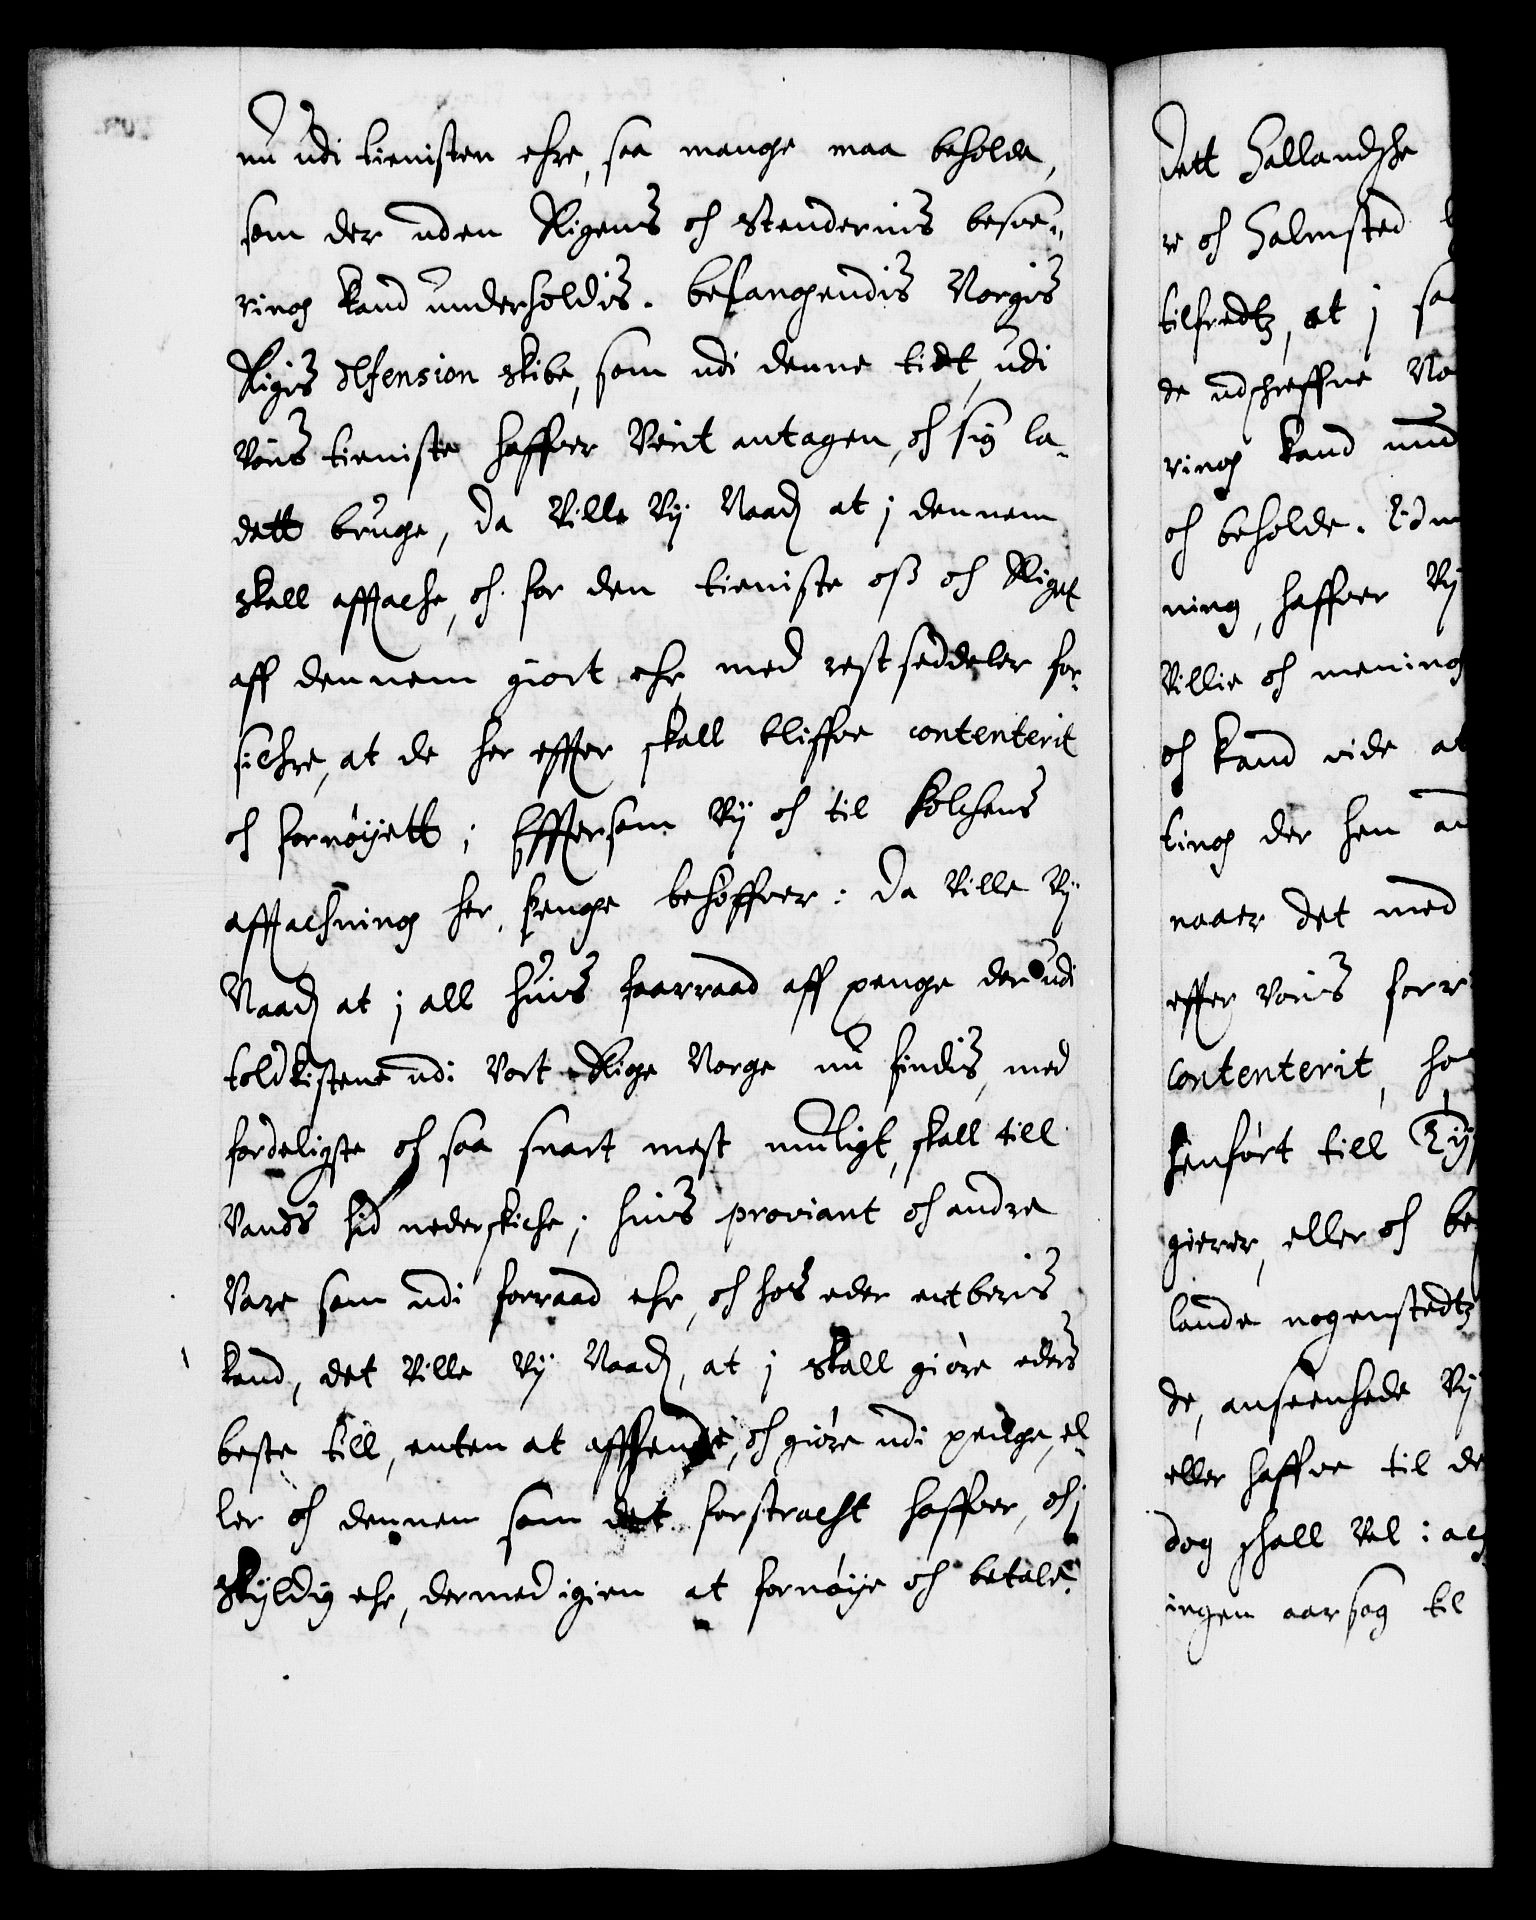 nu udi tienisten ehre, saa mange maa beholde,
som der uden Rigens och Stendernis besve„
ring kand underholdis. Belangendis Norgis
Rigis defension skibe, som udi denne tidt, udi
Voris tieniste haffver Verit antagen, och sig la„
dett bruge, da Ville Vij Naad: at j dennem
skall afftache, och for den tieniste oss och Riget
aff dennem giort ehr, med rest seddeler for„
sichre, at de her effter skall bliffve contenterit
och fornøyett; Efftersom Vij och til folchens
afftachning her, penge behøffver: da Ville Vij
Naad: at j all huis faarraad aff penge der udi
toldkistene udi Vort Rige Norge nu findis, med
forderligste och saa snart mest muligt, skall till
Vands hid nederskiche; huis proviant och andre
Vare som udi forraad ehr, och hos eder entberis
kand, det Ville Vij Naad:, at j skall giøre eders
beste till, enten at affhende, och giøre udi penge, el„
ler och dennem som det forstracht haffver, och j
skyldig ehr, dermed igien at fornøye och betale.
dett Hallandsche
re och Halmsted
tilfredtz, at j saa
de udschreffne No
ring kand und
och beholde.
ning, haffver Vij
Villie och mening
och kand vide at
ting der hen
naaer det med
effter Voris forr
contenterit, ho
henført till
gierer, eller och be
lande nogenstedtz
de, anseenhede Vij
eller haffve til de
dog schall Vel i ac
ingen aarsag til